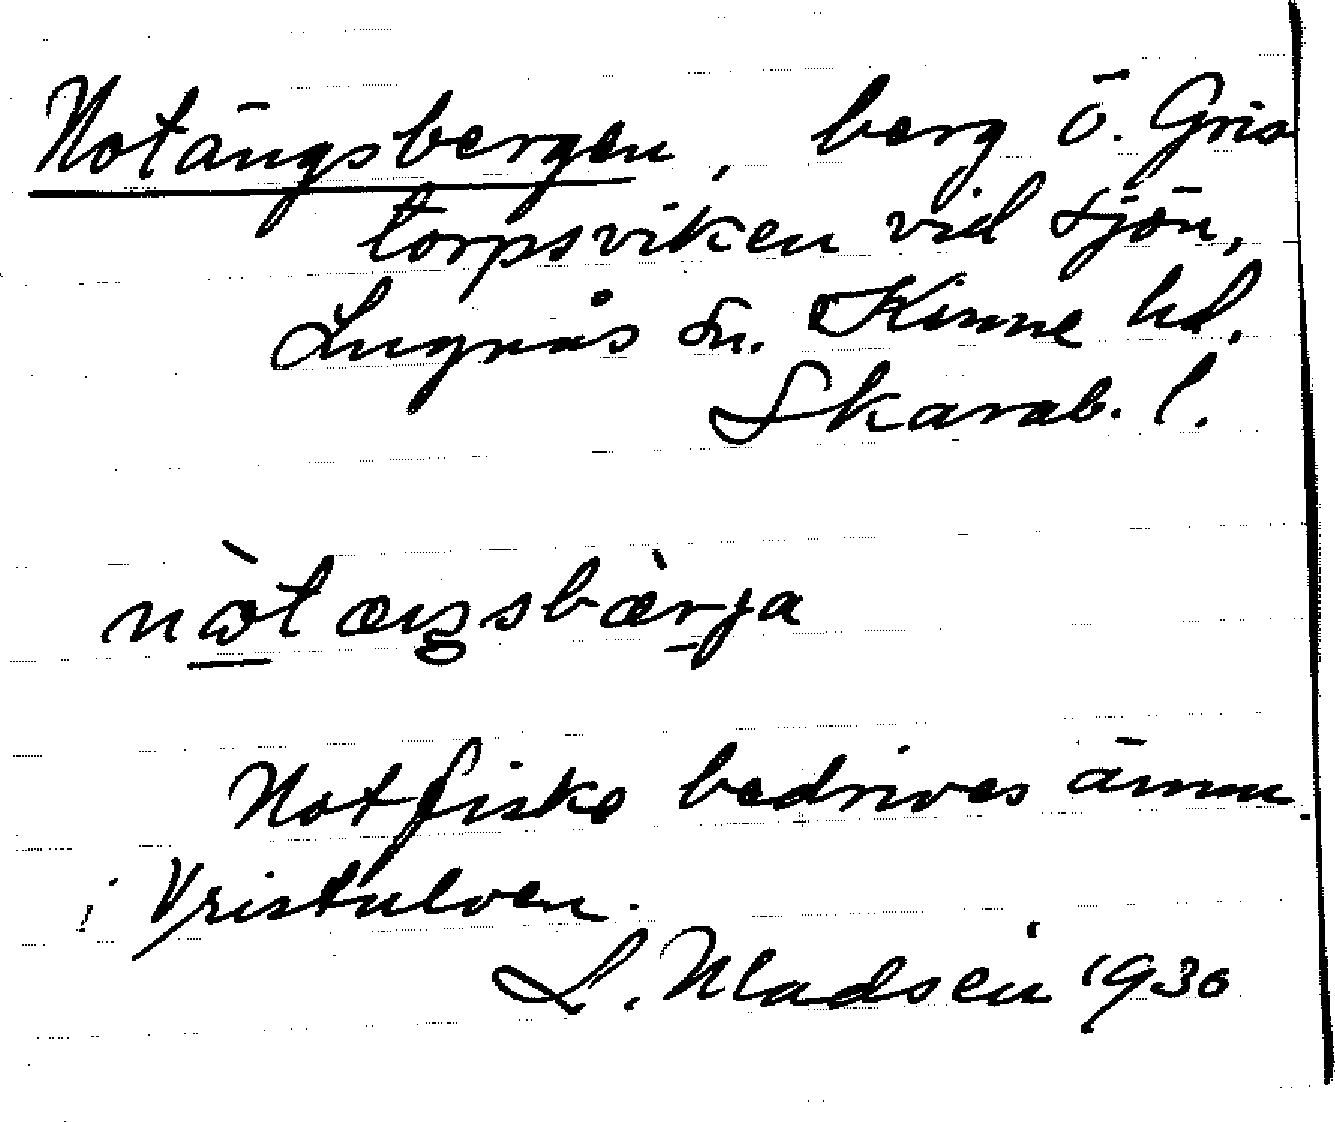 Notängsbergen, berg ö. Gris
torpsviken vid sjön,
Lugnås sn. Kinne hd.
Skarab. l.
nòtæŋsbæ̀rja
Notfiske bedrives ännu
i Vristulven.
L. Madsén 1930